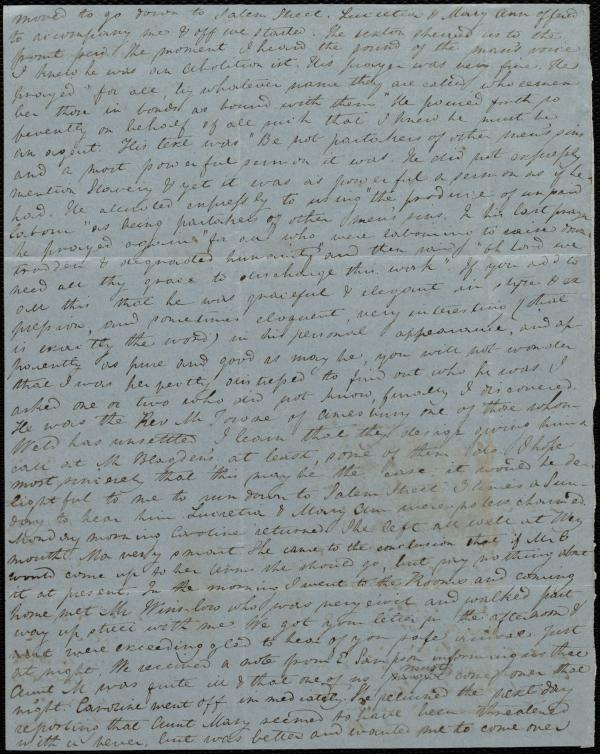 moved to go down to Salem Street. Lucretia & Mary Ann offered
to accompany me & off we started. The sexton showed us to the
front pew. The moment I heard the sound of the man's voice
I knew he was an Abolitionist. His prayer was very fine. He
prayed "for all, by whatever name they are called, who remem
ber those in bonds as bound with them" He poured forth so
fervently on behalf of all such that I knew he must be
an agent. His text was "Be not partakers of other men's sins
and a most powerful sermon it was. He did not expressly
mention slavery & yet it was as powerful a sermon as if he
had. He alluded expressly to using "the produce of unpaid
labour" as being partakers of other men's sins. In his last prayer
he prayed again "for all who were labouring to raise down
trodden & degraded humanity" and then said, "Oh Lord we
need all thy grace to discharge this work" If you add to
all this that he was graceful & elegant in style & ex
pression, and sometimes eloquent, very interesting (that
is exactly the word) in his personal appearance, and ap
parently as pure and good as may be, you will not wonder
that I was perfectly distressed to find out who he was. I
asked one or two who did not know, finally I discovered.
He was the Rev Mr Towne of Amesbury one of those whom
Weld has unsettled. I learn that they design giving him a
call at Mr Blagden's, at least, some of them do. I hope
most sincerely that this may be the case, it would be de
lightful to me to run down to Salem Street 3 times a Sun
day to hear him. Lucretia & Mary Ann were no less charmed.
Monday morning Caroline returned. She left all well at Wey
mouth. Ma very smart. She came to the conclusion that if Mr C
would come up to her terms she should go, but say nothing about
it at present. In the morning I went to the Rooms and coming
home met Mr Winslow who was very civil and walked part
way up street with me. We got your letter in the afternoon &
were exceeding glad to hear of your safe arrival. Just
at night. We received a note from E. Sampson informing us that
Aunt M. was quite ill & that one of us must come over that
night. Caroline went off immediately. She returned the next day
reporting that Aunt Mary seemed to have been threatened
with a fever, but was better and wanted me to come over